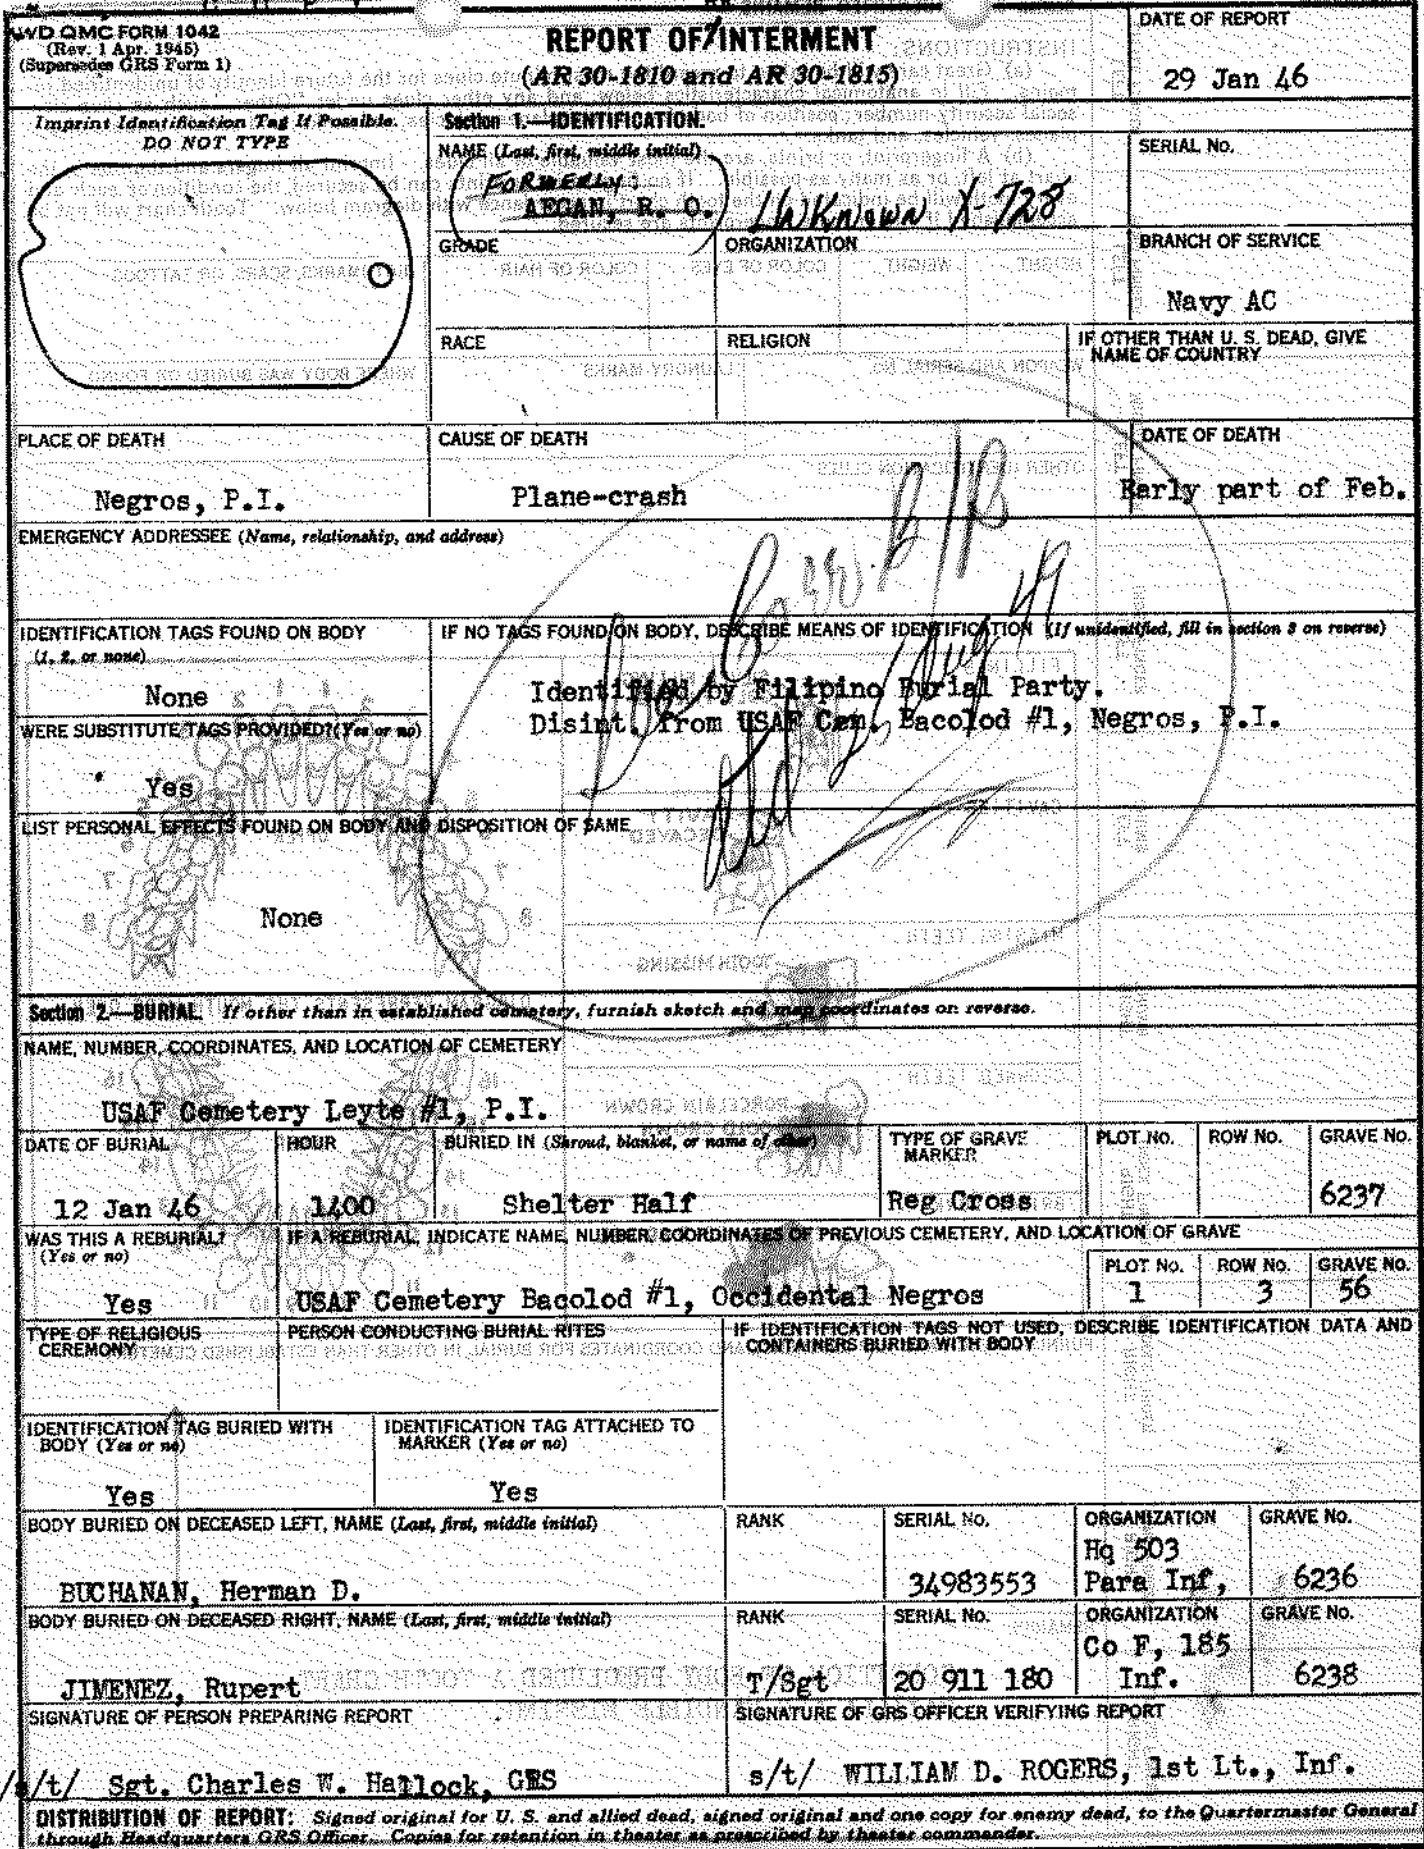 WD QMC FORM 1042
(Rev. 1 Apr. 1945)
(Supersedes GRS Form 1)
REPORT OF INTERMENT
(AR 30-1810 and AR 30-1815)
DATE OF REPORT
29 Jan 46
Imprint Identification Tag If Possible.
DO NOT TYPE
Section 1.—IDENTIFICATION.
NAME (Last, first, middle initial)
FORMERLY:
AEGAN, R. O.
UNKNOWN X-728
SERIAL No.
GRADE
ORGANIZATION
BRANCH OF SERVICE
Navy AC
RACE
RELIGION
IF OTHER THAN U. S. DEAD, GIVE
NAME OF COUNTRY
PLACE OF DEATH
Negros, P.I.
CAUSE OF DEATH
Plane-crash
DATE OF DEATH
Early part of Feb.
EMERGENCY ADDRESSEE (Name, relationship, and address)
IDENTIFICATION TAGS FOUND ON BODY
(1, 2, or none)
None
IF NO TAGS FOUND ON BODY, DESCRIBE MEANS OF IDENTIFICATION (If unidentified, fill in section 3 on reverse)
Identified by Filipino Burial Party.
Disint. from USAF Cem. Bacolod #1, Negros, P.I.
Aug 49
WERE SUBSTITUTE TAGS PROVIDED? (Yes or no)
Yes
LIST PERSONAL EFFECTS FOUND ON BODY AND DISPOSITION OF SAME
None
Section 2.—BURIAL. If other than in established cemetery, furnish sketch and map coordinates on reverse.
NAME, NUMBER, COORDINATES, AND LOCATION OF CEMETERY
USAF Cemetery Leyte #1, P.I.
DATE OF BURIAL
12 Jan 46
HOUR
1400
BURIED IN (Shroud, blanket, or name of other)
Shelter Half
TYPE OF GRAVE
MARKER
Reg Cross
PLOT No.
ROW No.
GRAVE No.
6237
WAS THIS A REBURIAL?
(Yes or no)
Yes
IF A REBURIAL, INDICATE NAME, NUMBER, COORDINATES OF PREVIOUS CEMETERY, AND LOCATION OF GRAVE
USAF Cemetery Bacolod #1, Occidental Negros
PLOT No.
1
ROW No.
3
GRAVE No.
56
TYPE OF RELIGIOUS
CEREMONY
PERSON CONDUCTING BURIAL RITES
IF IDENTIFICATION TAGS NOT USED, DESCRIBE IDENTIFICATION DATA AND
CONTAINERS BURIED WITH BODY
IDENTIFICATION TAG BURIED WITH
BODY (Yes or no)
Yes
IDENTIFICATION TAG ATTACHED TO
MARKER (Yes or no)
Yes
BODY BURIED ON DECEASED LEFT, NAME (Last, first, middle initial)
BUCHANAN, Herman D.
RANK
SERIAL No.
34983553
ORGANIZATION
Hq 503
Para Inf,
GRAVE No.
6236
BODY BURIED ON DECEASED RIGHT, NAME (Last, first, middle initial)
JIMENEZ, Rupert
RANK
T/Sgt
SERIAL No.
20 911 180
ORGANIZATION
Co F, 185
Inf.
GRAVE No.
6238
SIGNATURE OF PERSON PREPARING REPORT
/s/t/ Sgt. Charles W. Hallock, GRS
SIGNATURE OF GRS OFFICER VERIFYING REPORT
s/t/ WILLIAM D. ROGERS, 1st Lt., Inf.
DISTRIBUTION OF REPORT: Signed original for U. S. and allied dead, signed original and one copy for enemy dead, to the Quartermaster General
through Headquarters GRS Officer. Copies for retention in theater as prescribed by theater commander.